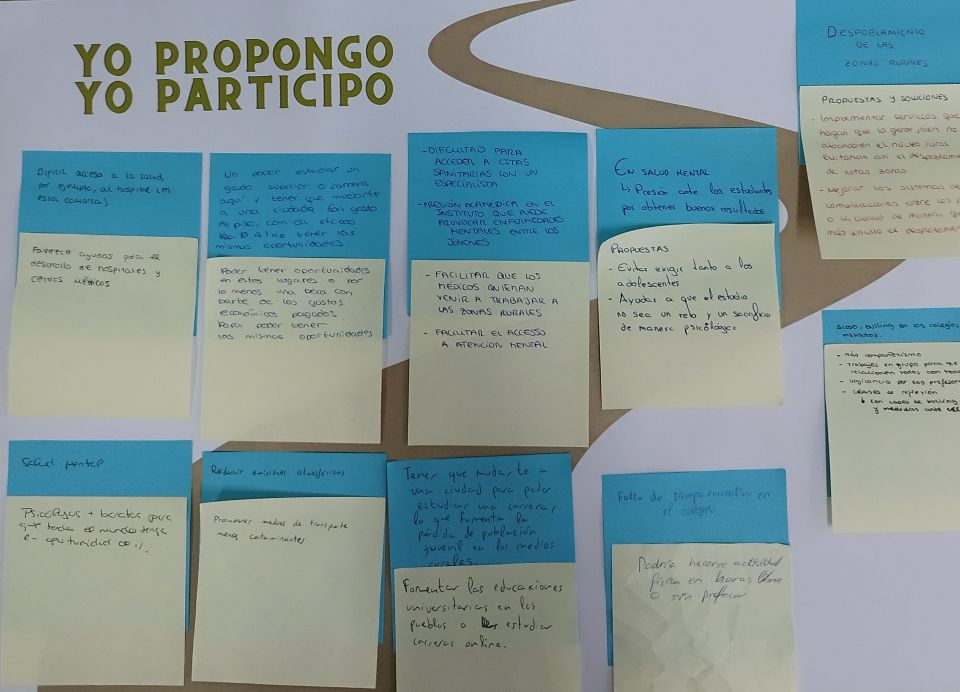 YO PROPONGO
YO PARTICIPO
Difícil acceso a la salud,
por ejemplo, al hospital (en
esta comarca)
Favorece ayudas para el
desarollo de hospitales y
centros médicos
No poder estudiar un
grado superior o carrera
aquí y tener que mudarte
a una ciudad con gasto
de piso, comida etc.
no tener las
mismas oportunidades
Poder tener oportunidades
en estos lugares o por
lo menos una beca con
parte de los gastos
económicos pagados.
Para poder tener
las mismas oportunidades
-DIFICULTAD PARA
ACCEDER A CITAS
SANITARIAS CON UN
ESPECIALISTA
-PRESIÓN ACADÉMICA EN EL
INSTITUTO QUE PUEDE
PROVOCAR ENFERMEDADES
MENTALES ENTRE LOS
JÓVENES
- FACILITAR QUE LOS
MÉDICOS QUIERAN
VENIR A TRABAJAR A
LAS ZONAS RURALES
- FACILITAR EL ACCESSO
A ATENCION MENTAL
EN SALUD MENTAL
↳ Presion ante los estudiantes
por obtener buenos resultados
PROPUESTAS
- Evitar exigir tanto a los
adolescentes
- Ayudar a que el estudio
no sea un reto y un sacrificio
de manera psicológica
DESPOBLAMIENTO
DE LAS
ZONAS RURALES
PROPUESTAS Y SOLUCIONES
- Implementar servicios que
hagan que la gente joven no
abandonen el núcleo rural
evitando así el despoblamie
de estas zonas
- Mejorar los sistemas de
comunicaciones entre los p
o la ciudad de manera que
más sencillo el desplazamien
Acoso, bulling en los colegios
institutos.
- más compañerismo
- Trabajos en grupo para que
relacionen todos con todo
- vigilancia por los profesor
- clases de reflexión
↳ con casos de bulling
y medidas ante
Salud mental
Psicólogos + baratos para
que todo el mundo tenga
oportunidad de ir.
Reducir emisiones atmosféricas
Promover medios de transporte
menos contaminantes
Tener que mudarte a
una ciudad para poder
estudiar una carrera,
lo que fomenta la
pérdida de población
juvenil en los medios
rurales.
Fomentar las educaciones
universitarias en los
pueblos o estudiar
carreras online.
Falta de tiempo recreativo en
el colegio
Podría hacerse actividad
física en horas libres
o sin profesor